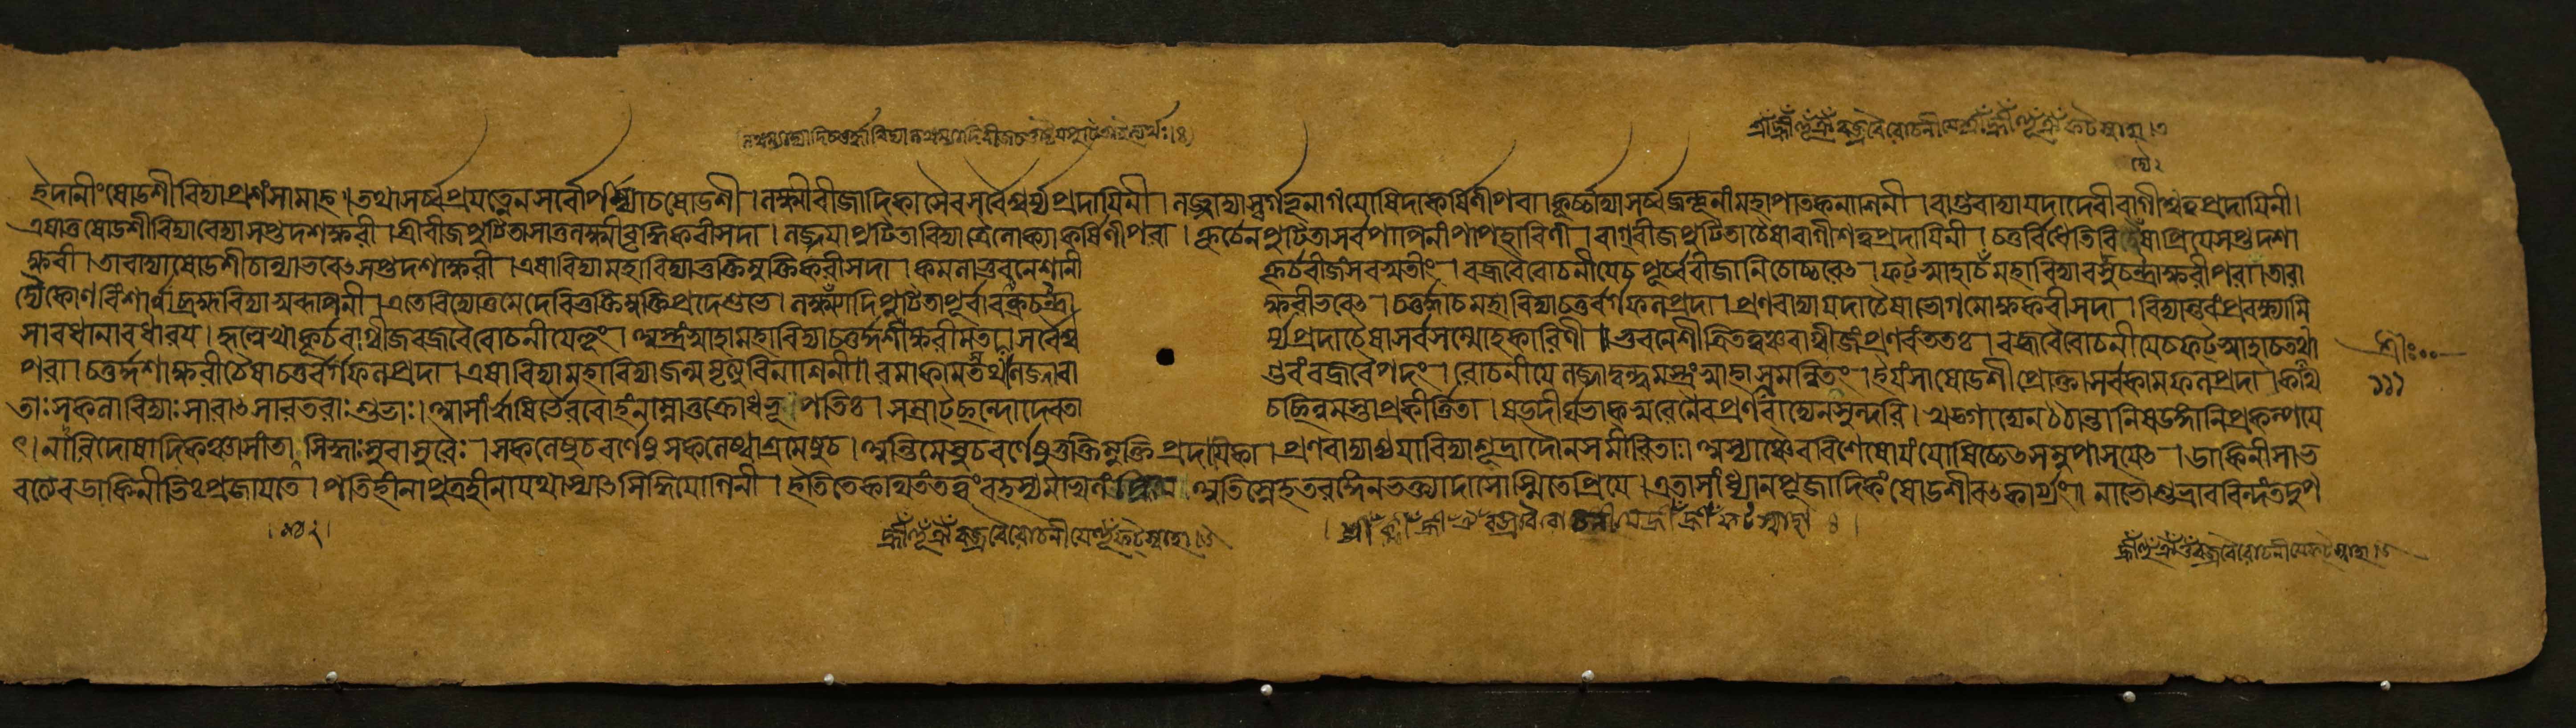 শ্রীঁহ্রীঁহূঁঐঁবজ্রবৈরোচনীযেশ্রীঁহ্রীঁহূঁঐঁফট্স্বাহা।
ইদানীংষোডশীবিদ্যাপ্রশংসামাহ।তথাসর্ব্বপ্রযত্নেনসর্বোপর্য্যাচষোডশী।লক্ষ্মীবীজাদিকাসৈবসর্বৈশ্বর্য্যপ্রদাযিনী।লজ্জাদ্যাস্বর্গভূনাগযোষিদাকর্ষিণীপরা।কূর্চ্চাদ্যাসর্ব্বজন্তূনাংমহাপাতকনাশিনী।বাগ্ভবাদ্যাযদাদেবীবাগীশত্বপ্রদাযিনী।
এষাতুষোডশীবিদ্যাবেদ্যাসপ্তদশক্ষরী।শ্রীবীজপুটিতাসাতুলক্ষ্মীবৃদ্ধিকরীসদা।লজ্জযাপুটিতাবিদ্যাত্রৈলোক্যাকর্ষিণীপরা।কূর্চেনপুটিতাসর্বপাপিনীপাপহারিণী।বাগ্বীজপুটিতাচৈষাবাগীশত্বপ্রদাযিনী।চতুর্বিধেতিবিদ্যৈষাপ্রিযেসপ্তদশা
ক্ষরী।তারাদ্যাষোডশীচান্যাভবেৎসপ্তদশাক্ষরী।এষাবিদ্যামহাবিদ্যাভুক্তিমুক্তিকরীসদা।কমলাভুবনেশানী কূর্চবীজংসরস্বতীং।বজ্রবৈরোচনীযেচপূর্ব্ববীজানিচোচ্চরেৎ।ফট্স্বাহাচমহাবিদ্যাবসুচন্দ্রাক্ষরীপরা।তারা
দ্যেকোণবিংশার্ণাব্রহ্মবিদ্যাস্বরূপিনী।এতেবিদ্যোত্তমেদেবিভুক্তিমুক্তিপ্রদেশুভে।লক্ষ্ম্যাদিপুটিতাপূর্বারন্ধ্রচন্দ্রা ক্ষরীভবেৎ।চতুর্দ্ধাচমহাবিদ্যাচতুর্বর্গফলপ্রদা।প্রণবাদ্যাযদাচৈষাভোগমোক্ষকরীসদা।বিদ্যান্তরংপ্রবক্ষ্যামি
সাবধানাবধারয।হৃল্লেখাকূর্চবাগ্বীজবজ্রবৈরোচনীযেহূং।অস্ত্রংস্বাহামহাবিদ্যাচতুর্দ্দশাক্ষরীমতা।সর্বৈশ্ব র্য্যপ্রদাচৈষাসর্বসম্মোহকারিণী॥ভুবনেশীত্রিতত্ত্বঞ্চবাগ্বীজংপ্রণবংততঃ।বজ্রবৈরোচনীযেচফট্স্বাহাচতথা
পরা।চতুর্দ্দশাক্ষরীচৈষাচতুর্বর্গফলপ্রদা।এষাবিদ্যামহাবিদ্যাজন্মমৃত্যুবিনাশিনী॥রমাকামস্তথালজ্জাবা গ্ভবংবজ্রবৈপদং।রোচনীযেলজ্জাদ্বন্দ্বমস্ত্রংস্বাহাসমন্বিতং।ইযংসাষোডশীপ্রোক্তাসর্বকামফলপ্রদা।কথি
তাঃসকলাবিদ্যাঃসারাৎসারতরাঃশুভাঃ।আসাংঋষির্ভৈরবোহংনাম্নাতুক্রোধভূপতিঃ।সম্রাট্ছন্দোদেবতা চছিন্নমস্তাপ্রকীর্ত্তিতা।ষড্দীর্ঘভাক্স্বরেনৈবপ্রণবাদ্যেনসুন্দরি।খড্গাদ্যেনঠঠান্তানিষডঙ্গানিপ্রকল্পযে
ৎ।নারিদোষাদিকঞ্চাসাংতাসিদ্ধাঃসুরাসুরৈঃ।সকলেষুচবর্ণেষুসকলেষ্বাশ্রমেষুচ।অন্তিমেষুচবর্ণেষুভুক্তিমুক্তিপ্রদাযিকা।প্রণবাদ্যাশ্চযাবিদ্যাশূদ্রাদৌনসমীরিতাঃ।অস্যাশ্চৈববিশেষোযংযোষিচ্চেৎসমুপাসযেৎ।ডাকিনীসাভ
বত্যেবডাকিনীভিঃপ্রজাযতে।পতিহীনাপুত্রহীনাযথাস্যাৎসিদ্ধিযোগিনী।ইতিতেকথিতংতত্ত্বংরহস্যমখিলংপ্রিযে।অতিস্নেহতরঙ্গেনভক্ত্যাদাসোস্মিতেপ্রিযে।এতাসাংধ্যানপূজাদিকংষোডশীবৎকার্য্যং।নাভৌশুভ্রারবিন্দংতদুপ
শ্রীঃ
১১১
হ্রীঁহূঁঐঁবজ্রবৈরোচনীযেহূঁফট্স্বাহা।
শ্রীঁক্লীঁহ্রীঁঐঁবজ্রবৈরোচনীযেহ্রীঁহ্রীঁফট্স্বাহা।